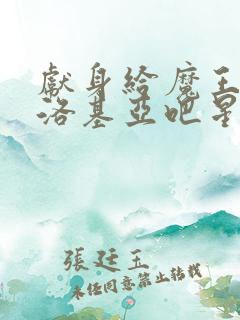 獻身給魔王
洛基亞吧星
張廷玉
未經同意禁止轉載